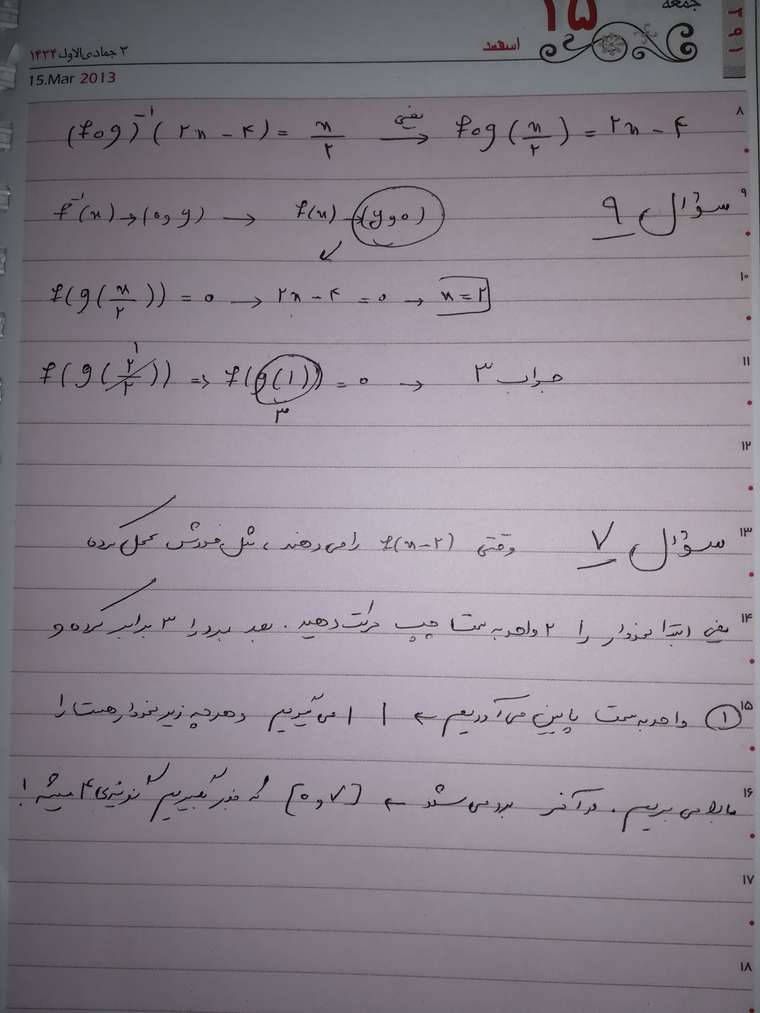 جمعه
۱۵
اسفند
۳ جمادی‌الاول ۱۴۳۴
15.Mar 2013
۳۹۱
۸
(fog)⁻¹(۲x − ۴) = x/۲ یعنی → fog(x/۲) = ۲x − ۴
۹
سؤال ۹
f⁻¹(x) → (۰ و y) → f(x) → (y و ۰)
۱۰
f(g(x/۲)) = ۰ → ۲x − ۴ = ۰ → x = ۲
۱۱
f(g(۲/۲)) ⇒ f(g(۱)) = ۰ → جواب ۳
۱
۳
۱۲
۱۳
سؤال ۷ وقتی f(x−۲) را می‌دهند، مثل خودش عمل کرده
۱۴
یعنی ابتدا نمودار را ۲ واحد به سمت چپ حرکت دهید. بعد برد را ۳ برابر کرده و
۱۵
۱ واحد به سمت پایین می‌آوریم ← | | می‌گیریم و هر چه زیر نمودار هست را
۱۶
ما بالا می‌بریم. در آخر برد می‌شود ← [۰ و ۷] که جذر بگیریم گزینه‌ی ۴ میشه!
۱۷
۱۸